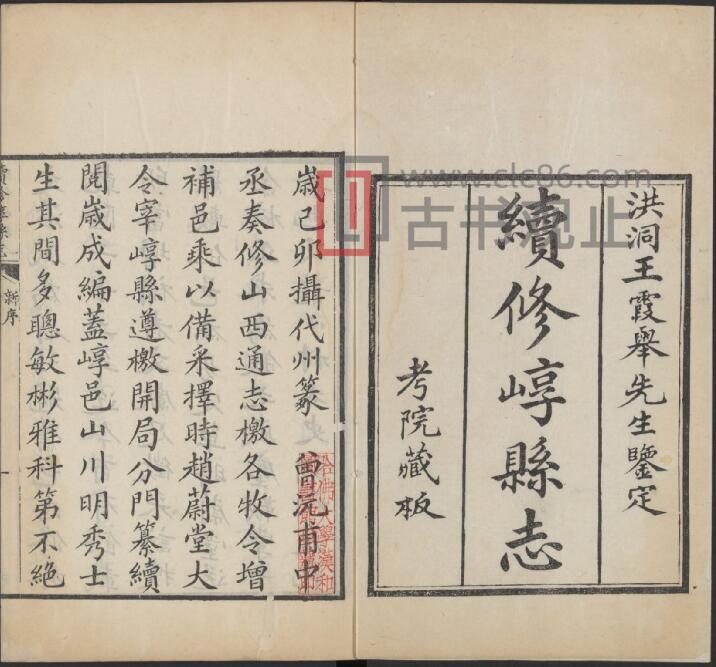 洪洞王霞舉先生鑒定
續修崞縣志
考院藏板
歲己卯攝代州篆 曾沅甫中
丞奏修山西通志檄各牧令增
補邑乘以備采擇時趙蔚堂大
令宰崞縣遵檄開局分門纂續
閱歲成編蓋崞邑山川明秀士
生其間多聰敏彬雅科第不絕
新序
www.clc86.com
古书观止